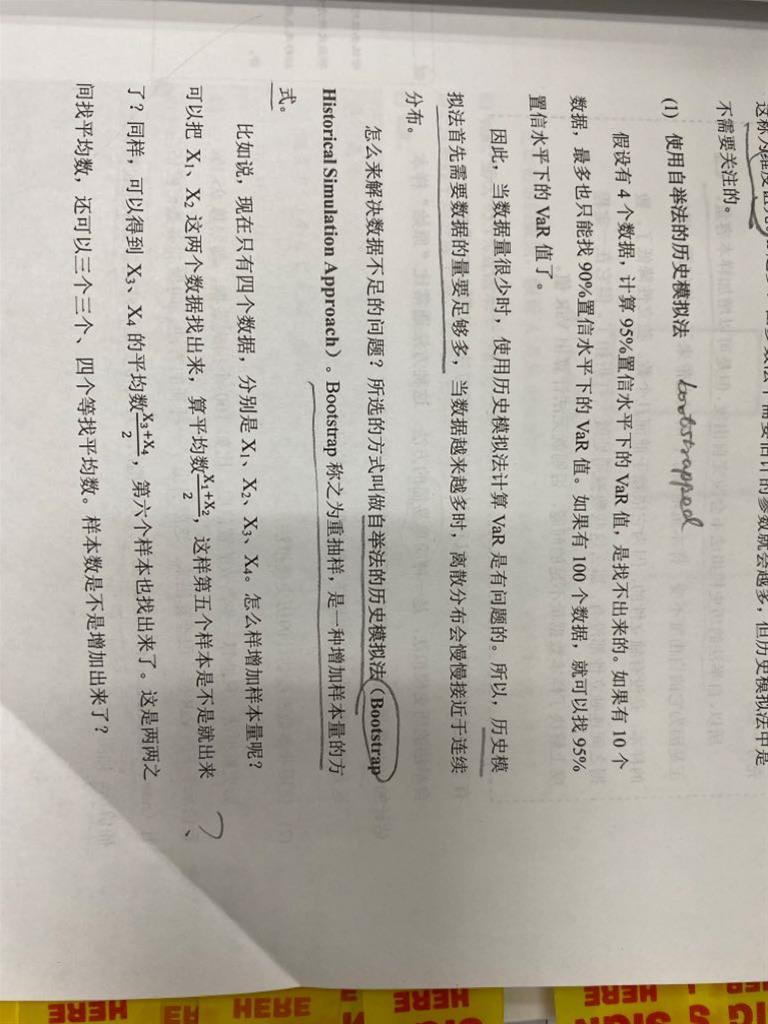 不需要关注的。
(1) 使用自举法的历史模拟法 bootstrapped
假设有 4 个数据，计算 95%置信水平下的 VaR 值，是找不出来的。如果有 10 个
数据，最多也只能找 90%置信水平下的 VaR 值。如果有 100 个数据，就可以找 95%
置信水平下的 VaR 值了。
因此，当数据量很少时，使用历史模拟法计算 VaR 是有问题的。所以，历史模
拟法首先需要数据的量要足够多，当数据越来越多时，离散分布会慢慢接近于连续
分布。
怎么来解决数据不足的问题？所选的方式叫做自举法的历史模拟法（Bootstrap
Historical Simulation Approach）。Bootstrap 称之为重抽样，是一种增加样本量的方
式。
比如说，现在只有四个数据，分别是 X₁、X₂、X₃、X₄。怎么样增加样本量呢？
可以把 X₁、X₂ 这两个数据找出来，算平均数(X₁+X₂)/2，这样第五个样本是不是就出来
了？同样，可以得到 X₃、X₄ 的平均数(X₃+X₄)/2，第六个样本也找出来了。这是两两之
间找平均数，还可以三个三个、四个等找平均数。样本数是不是增加出来了？
?
HERE
HERE
HERE
HERE
SIGN